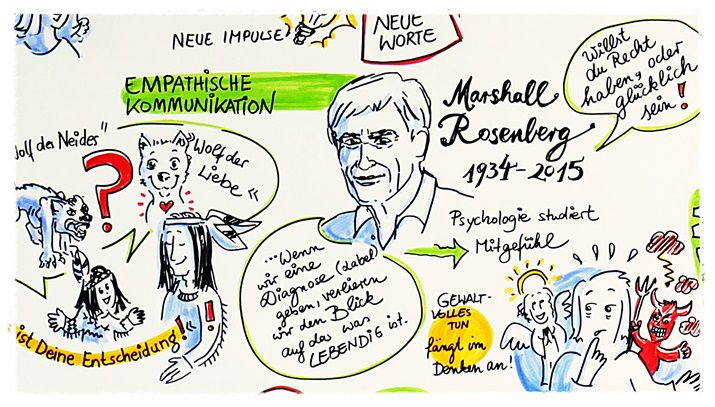 NEUE IMPULSE
NEUE
WORTE
EMPATHISCHE
KOMMUNIKATION
Marshall
Rosenberg
1934-2015
Willst
du Recht
haben, oder
glücklich
sein!
Wolf des Neides"
"Wolf der
Liebe"
?
...Wenn
wir eine
Diagnose (Label)
geben, verlieren
wir den Blick
auf das was
LEBENDiG ist.
Psychologie studiert
Mitgefühl
GEWALT-
VOLLES
TUN
fängt im
Denken an!
ist Deine Entscheidung!"